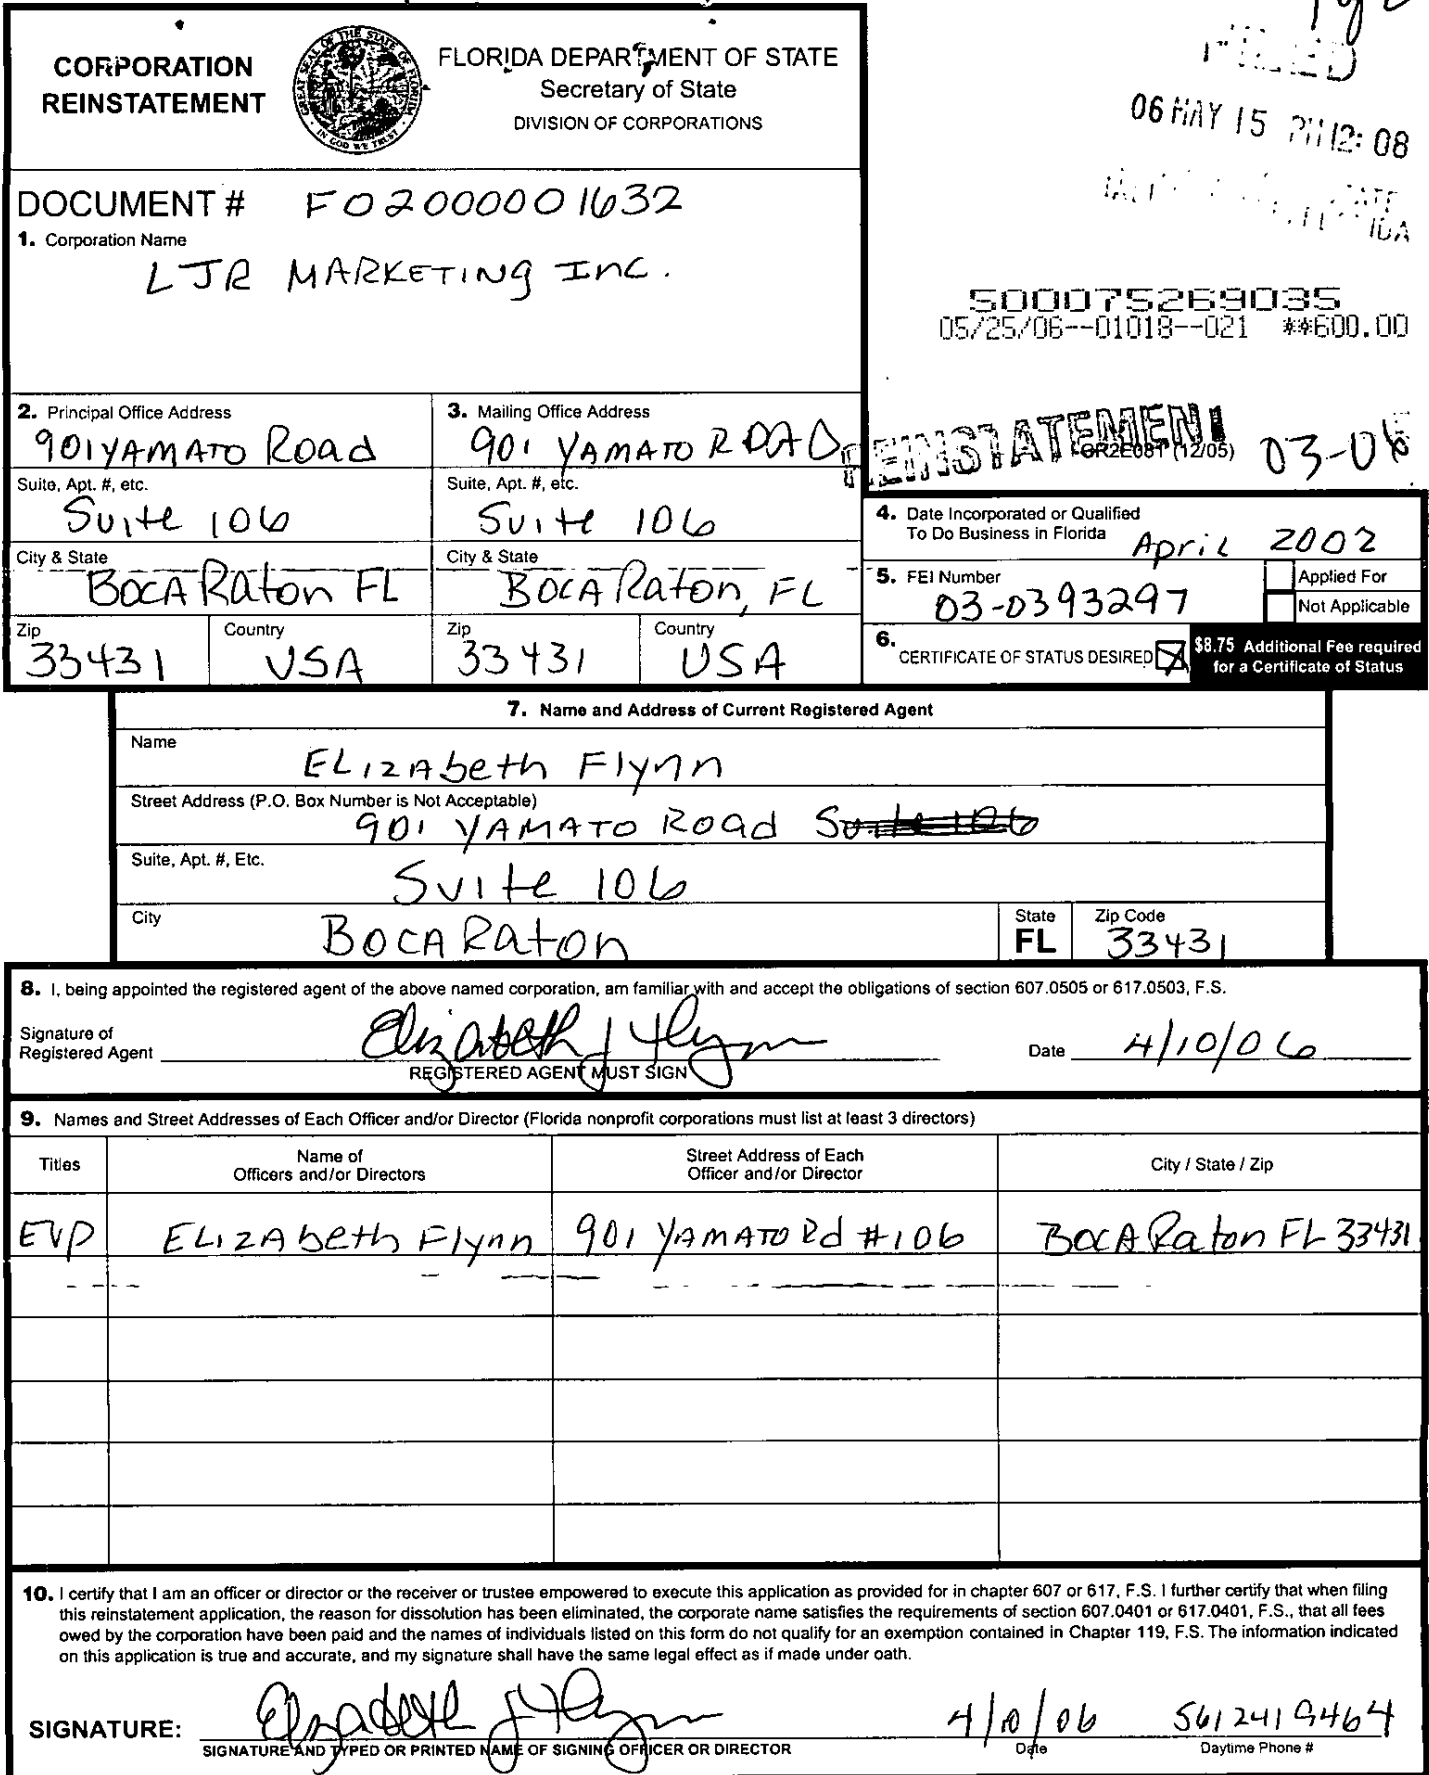 CORPORATION
REINSTATEMENT
GREAT SEAL OF THE STATE OF FLORIDA
IN GOD WE TRUST
FLORIDA DEPARTMENT OF STATE
Secretary of State
DIVISION OF CORPORATIONS
FILED
06 MAY 15 PM 12: 08
DOCUMENT # F02000001632
1. Corporation Name
LJR MARKETING INC.
500075269035
05/25/06--01018--021 **600.00
REINSTATEMENT
CR2E081 (12/05)
2. Principal Office Address
901 YAMATO Road
Suite, Apt. #, etc.
Suite 106
City & State
BOCA Raton FL
Zip
33431
Country
USA
3. Mailing Office Address
901 YAMATO ROAD
Suite, Apt. #, etc.
Suite 106
City & State
BOCA Raton, FL
Zip
33431
Country
USA
4. Date Incorporated or Qualified
To Do Business in Florida April 2002
5. FEI Number
03-0393297
Applied For
Not Applicable
6. CERTIFICATE OF STATUS DESIRED
$8.75 Additional Fee required
for a Certificate of Status
7. Name and Address of Current Registered Agent
Name
ELIZAbeth Flynn
Street Address (P.O. Box Number is Not Acceptable)
901 YAMATO ROad Suite 106
Suite, Apt. #, Etc.
Suite 106
City
BOCA Raton
State
FL
Zip Code
33431
8. I, being appointed the registered agent of the above named corporation, am familiar with and accept the obligations of section 607.0505 or 617.0503, F.S.
Signature of
Registered Agent Elizabeth J Flynn
REGISTERED AGENT MUST SIGN
Date 4/10/06
9. Names and Street Addresses of Each Officer and/or Director (Florida nonprofit corporations must list at least 3 directors)
Titles
Name of
Officers and/or Directors
Street Address of Each
Officer and/or Director
City / State / Zip
EVP ELIZAbeth Flynn 901 YAMATO Rd #106 BOCA Raton FL 33431
10. I certify that I am an officer or director or the receiver or trustee empowered to execute this application as provided for in chapter 607 or 617, F.S. I further certify that when filing
this reinstatement application, the reason for dissolution has been eliminated, the corporate name satisfies the requirements of section 607.0401 or 617.0401, F.S., that all fees
owed by the corporation have been paid and the names of individuals listed on this form do not qualify for an exemption contained in Chapter 119, F.S. The information indicated
on this application is true and accurate, and my signature shall have the same legal effect as if made under oath.
SIGNATURE: Elizabeth J Flynn 4/10/06 5612419464
SIGNATURE AND TYPED OR PRINTED NAME OF SIGNING OFFICER OR DIRECTOR
Date
Daytime Phone #